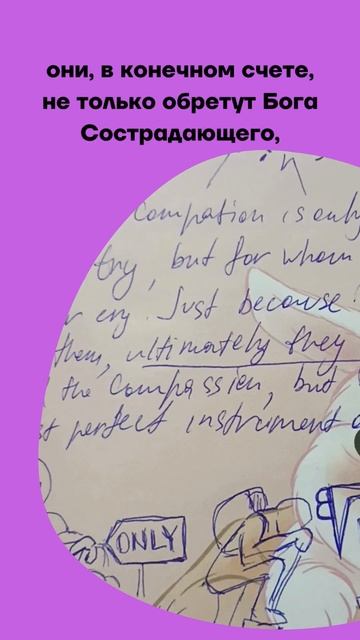 они, в конечном счете,
не только обретут Бога
Сострадающего,
Compation is only
try, but for whom
cry. Just because
them, ultimately they
the Compassion, but
perfect instrument
ONLY